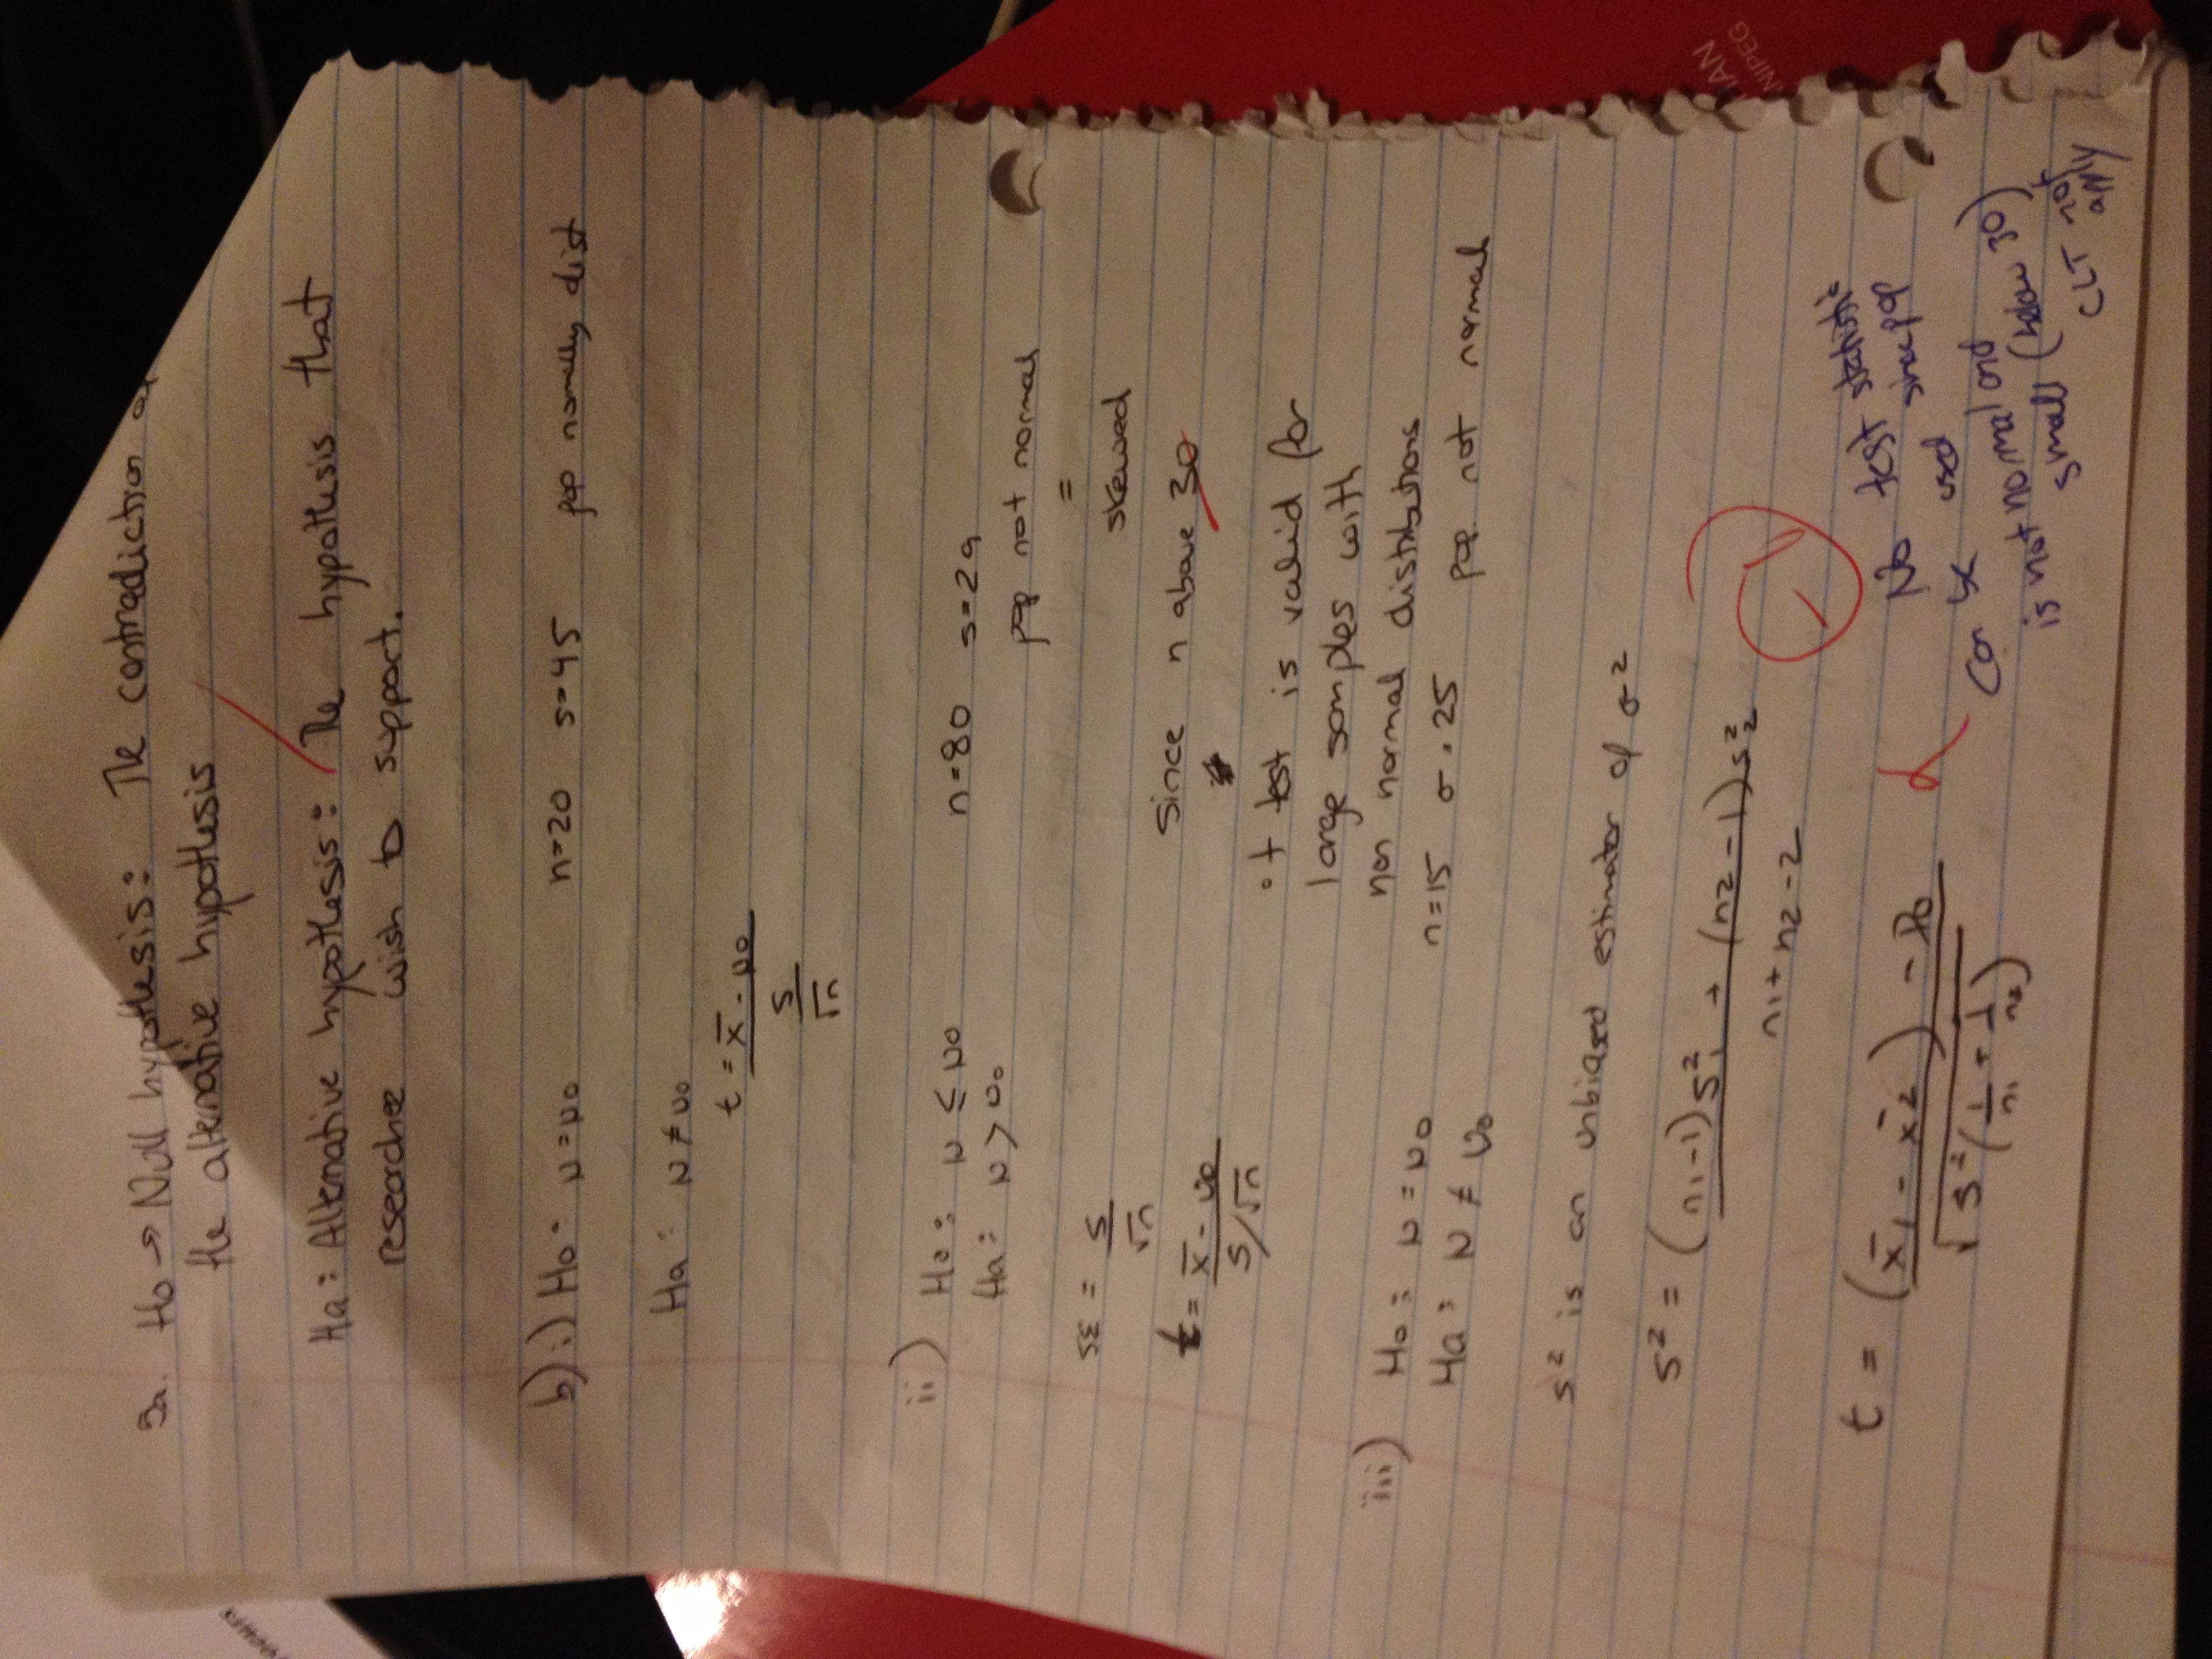 5a. Ho → Null hypothesis: The contradiction of
the alternative hypothesis
Ha: Alternative hypothesis: The hypothesis that
researcher wish to support.
b) i) Ho: μ=μo n=20 s=45 pop normally dist
Ha: μ≠μo
t = x̄ - μo
s
√n
ii) Ho: μ ≤ μo n=80 s=29
Ha: μ > μo pop not normal
=
skewed
SE = s
√n
Since n above 30
t = x̄ - μo
s/√n
• t test is valid for
large samples with
non normal distributions
iii) Ho: μ = μo n=15 σ = 25 pop not normal
Ha: μ ≠ μo
s² is an unbiased estimator of σ²
s² = (n1-1)s²1 + (n2-1)s²2
n1+n2-2
t = (x̄1 - x̄2) - Do
√s²(1/n1 + 1/n2)
No test statistic
can be used since pop
is not normal and
small (below 30)
CLT not
apply
MAN
NIPEG